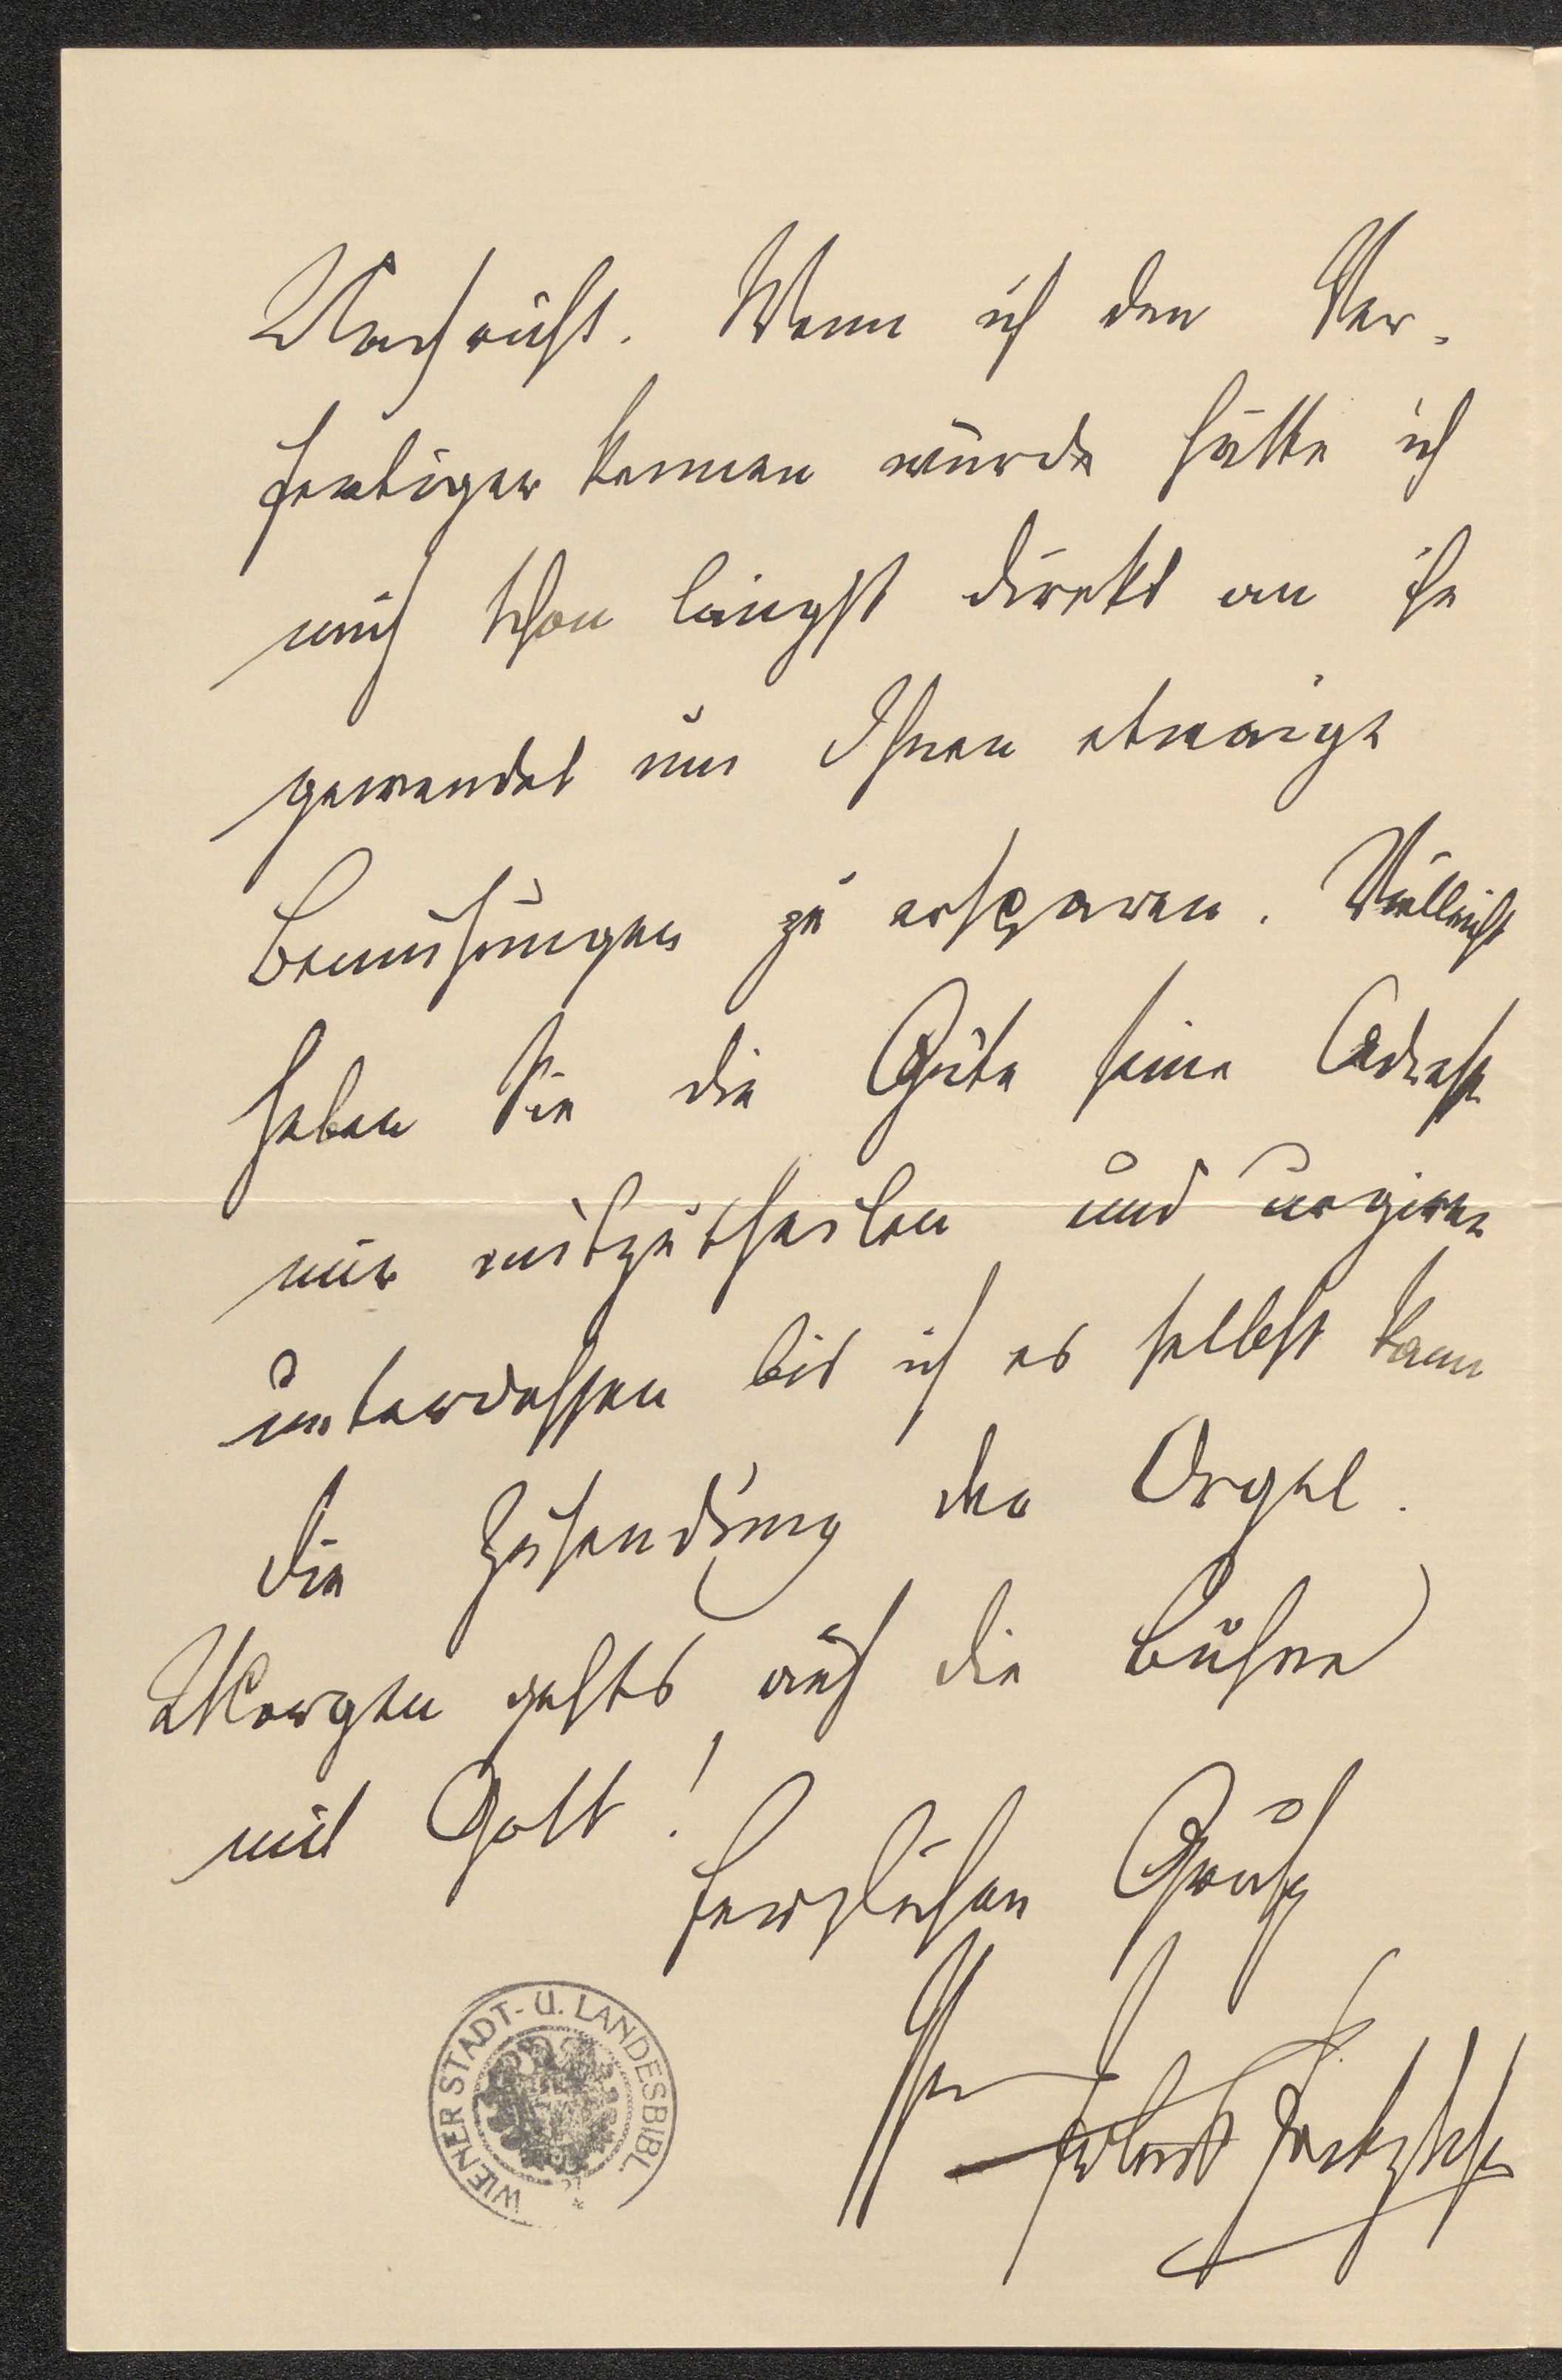 Nachricht. Wenn ich den Ver-
fertiger kennen würde hätte ich
mich schon längst direkt an ihn
gewendet um Ihnen etwaige
Bemühungen zu ersparen. Vielleicht
haben Sie die Güte seine Adresse
mir mitzutheilen und urgiren
unterdessen bis ich es selbst kann
die Zusendung der Orgel.
Morgen gehts auf die Bühne
mit Gott!
Herzlichen Gruß
Ihr
WIENER STADT- U. LANDESBIBL.